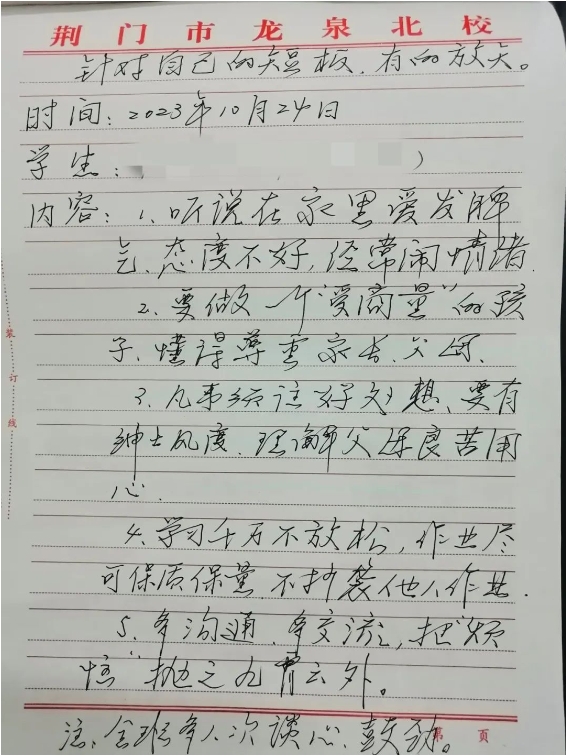 荆门市龙泉北校
针对自己的短板、有的放矢。
时间：2023年10月24日
学生： ）
内容：1、听说在家里爱发脾
气、态度不好，经常闹情绪.
2、要做一个“受商量”的孩
子、懂得尊重家长、父母、
3、凡事往好处想、要有
绅士风度、理解父母良苦用
心.
4、学习千万不放松，作业尽
可保质保量、不抄袭他人作业.
5、多沟通、多交流，把“烦
恼”抛之九霄云外。
注、全班多人次谈心、鼓劲。
第 页
装
订
线